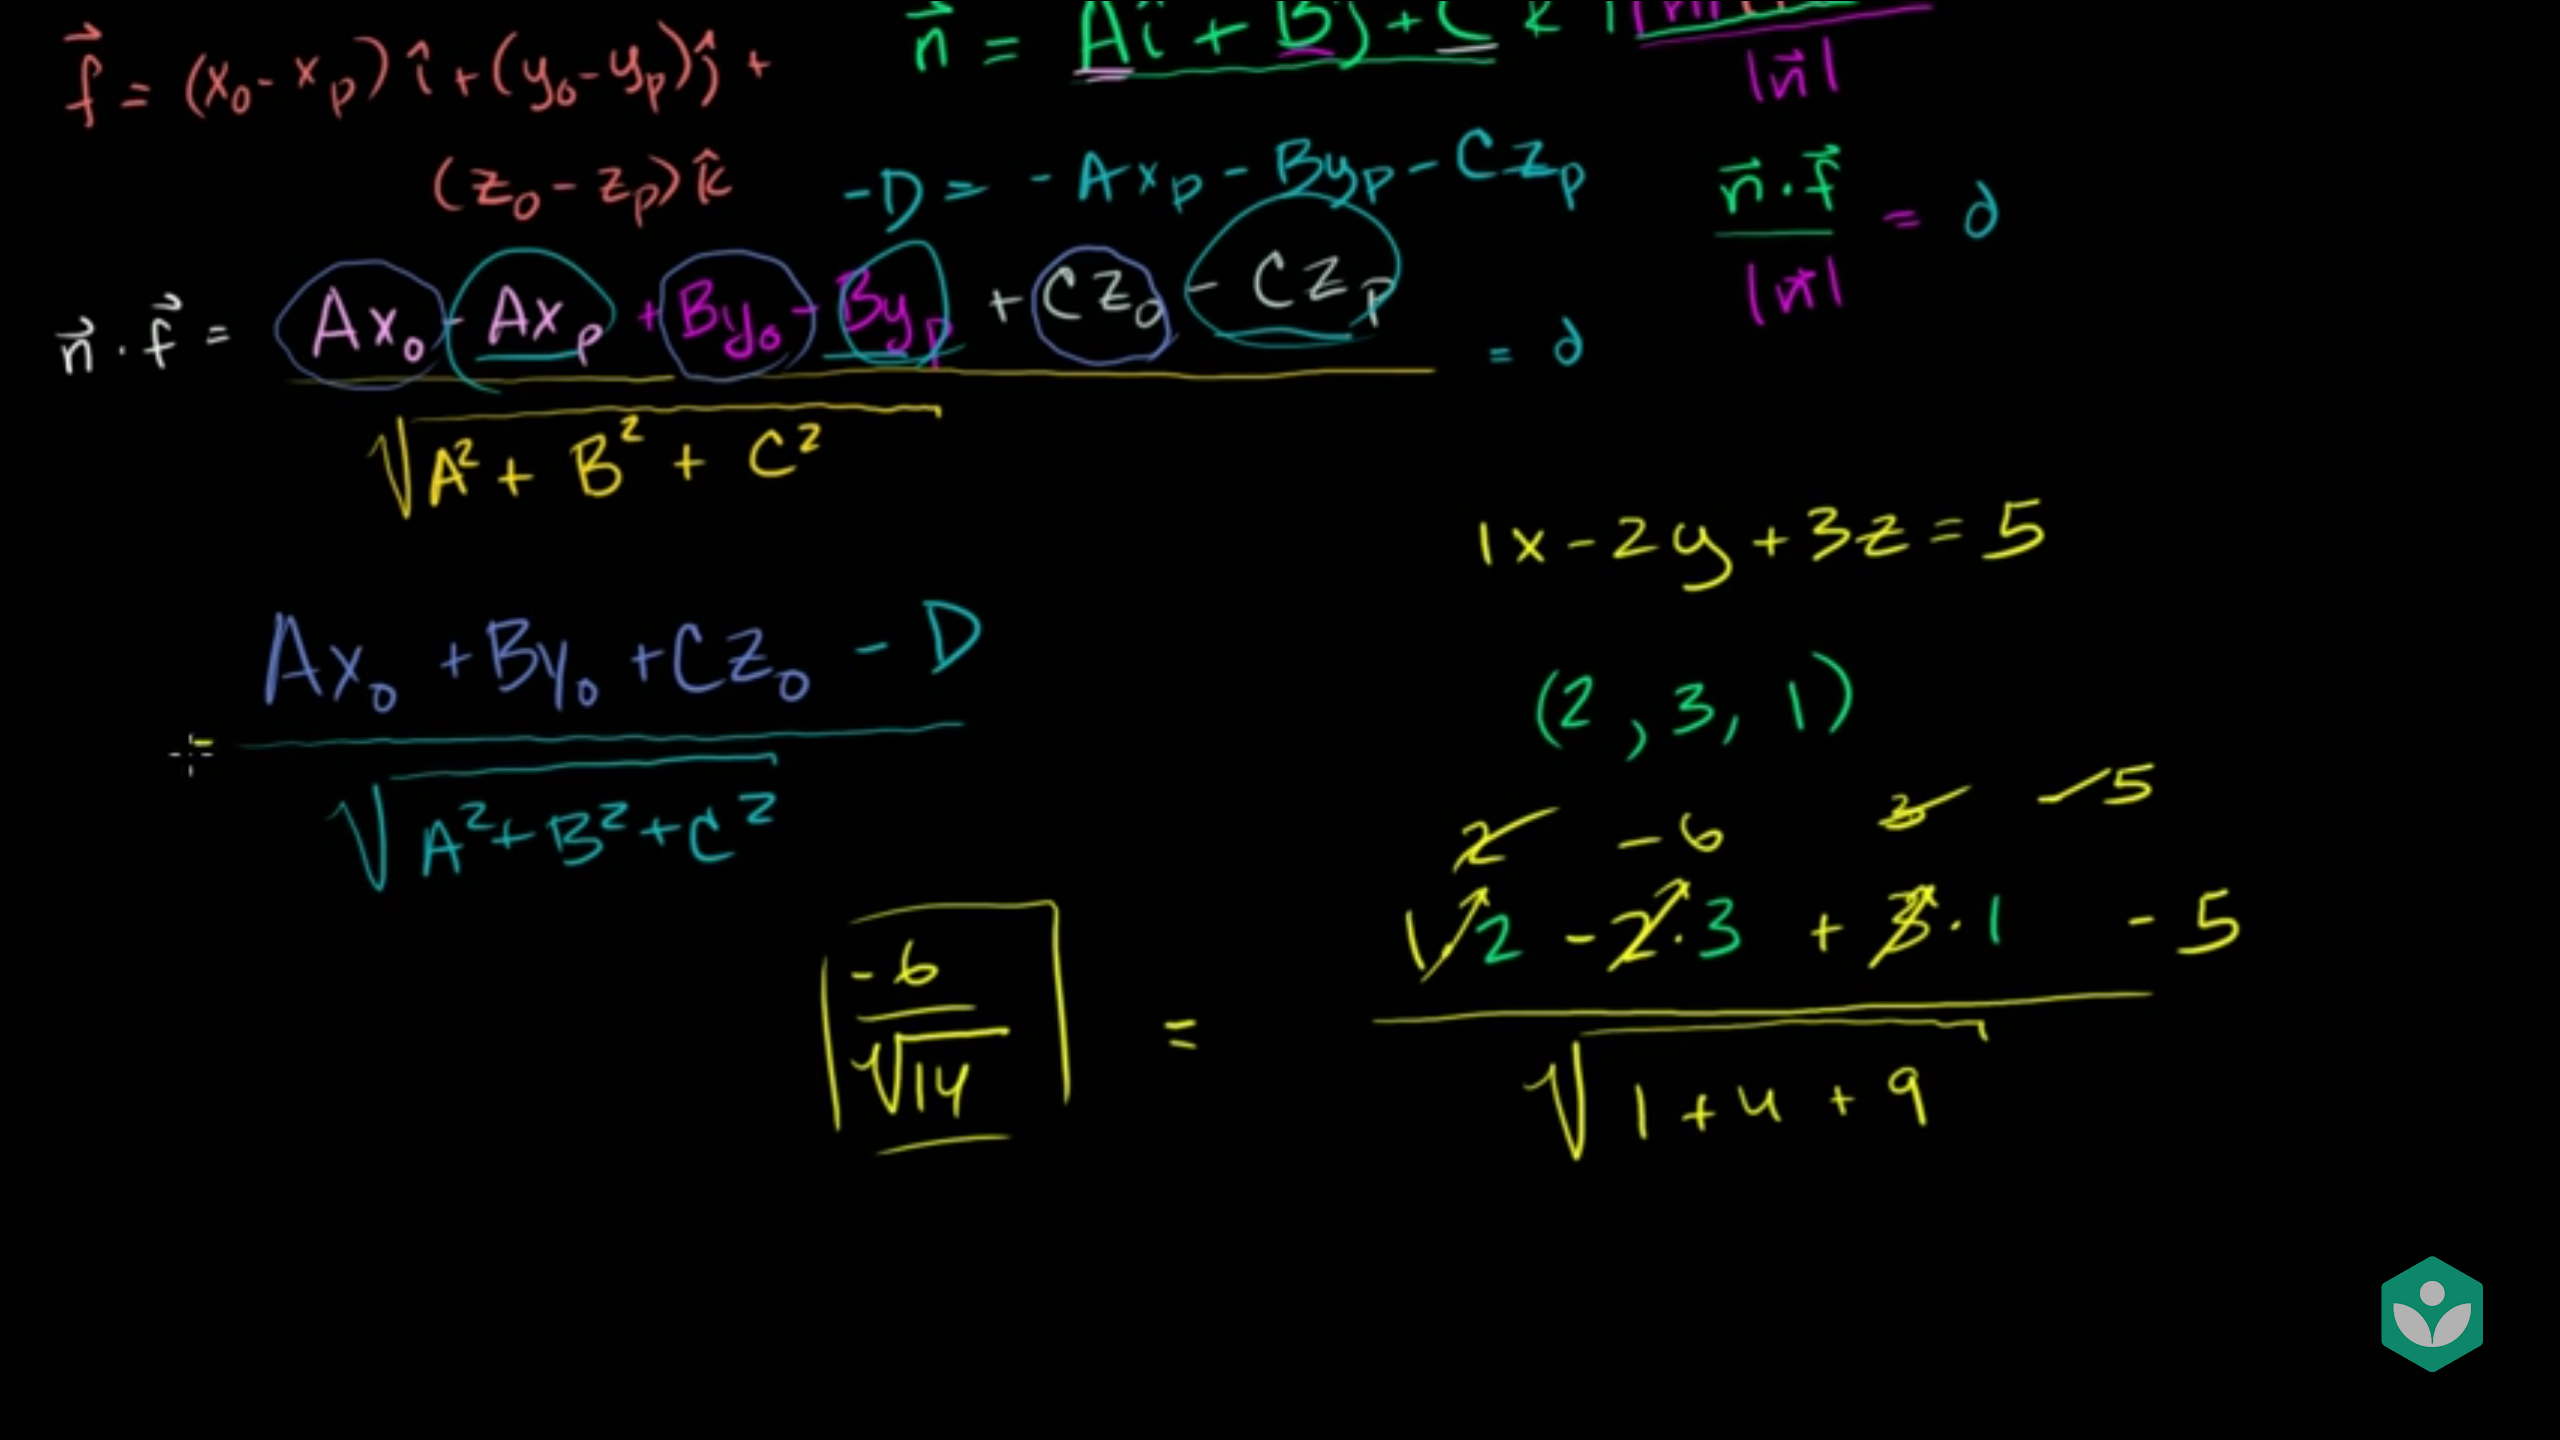 f⃗ = (x₀ - xₚ) î + (y₀ - yₚ) ĵ +
(z₀ - zₚ) k̂
n⃗ = Aî + Bĵ + C k
|n⃗|
-D = - Axₚ - Byₚ - Czₚ
n⃗ · f⃗ / |n⃗| = d
n⃗ · f⃗ = Ax₀ - Axₚ + By₀ - Byₚ + Cz₀ - Czₚ = d
√A² + B² + C²
1x - 2y + 3z = 5
= Ax₀ + By₀ + Cz₀ - D
√A² + B² + C²
(2, 3, 1)
2 - 6 3 - 5
1 · 2 - 2 · 3 + 3 · 1 - 5
√1 + 4 + 9
=
- 6
√14